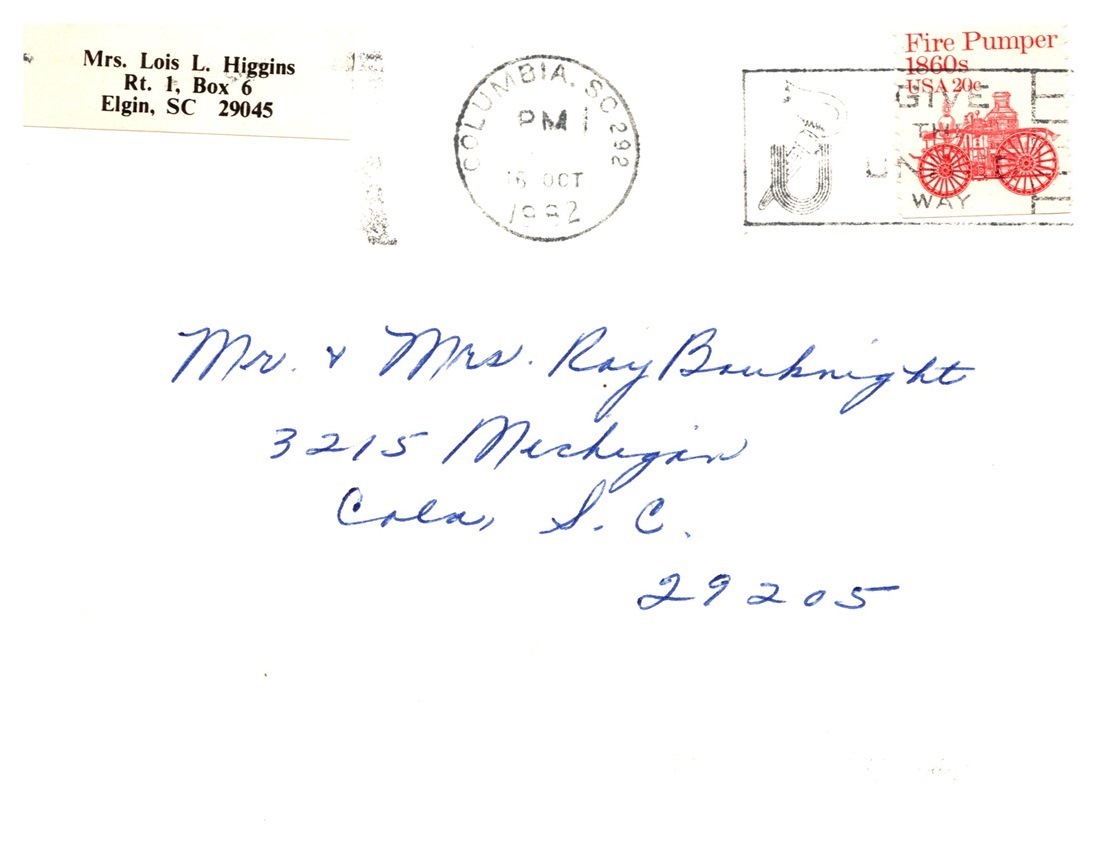 Mrs. Lois L. Higgins
Rt. 1, Box 6
Elgin, SC 29045
COLUMBIA, SC 292
PM
16 OCT
1982
Fire Pumper
1860s
USA 20c
GIVE
THE
UNITED
WAY
Mr. & Mrs. Ray Bouknight
3215 Michigan
Cola, S. C.
29205